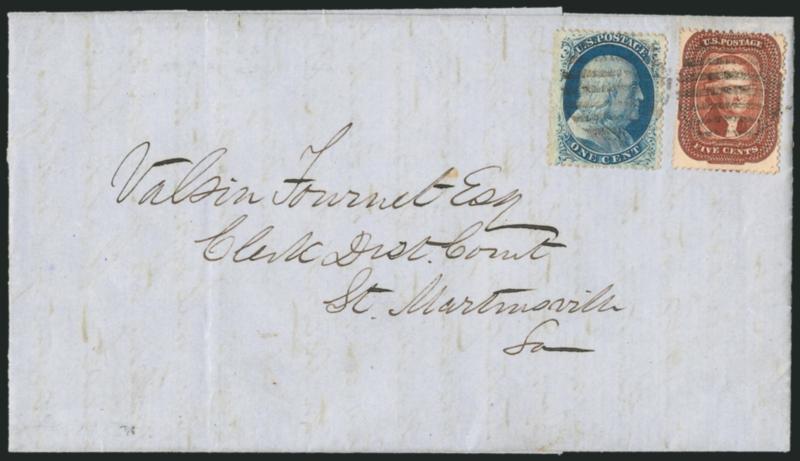 U.S. POSTAGE
ONE CENT
U.S. POSTAGE
FIVE CENTS
Valsin Fournet Esq
Clerk Dist. Court
St. Martinsville
La